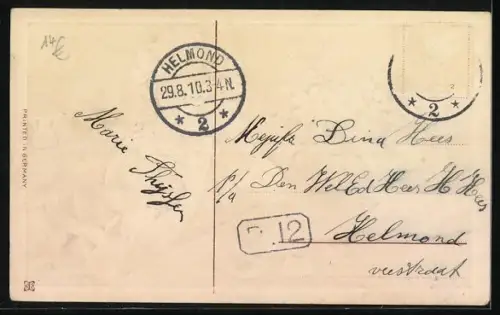 14 €
HELMOND
29.8.10.3-4N.
* 2 *
* 2 *
PRINTED IN GERMANY
Marie
Mejufr Dina Hees
p/a Den WelEd Heer H Hees
.12
Helmond
veestraat